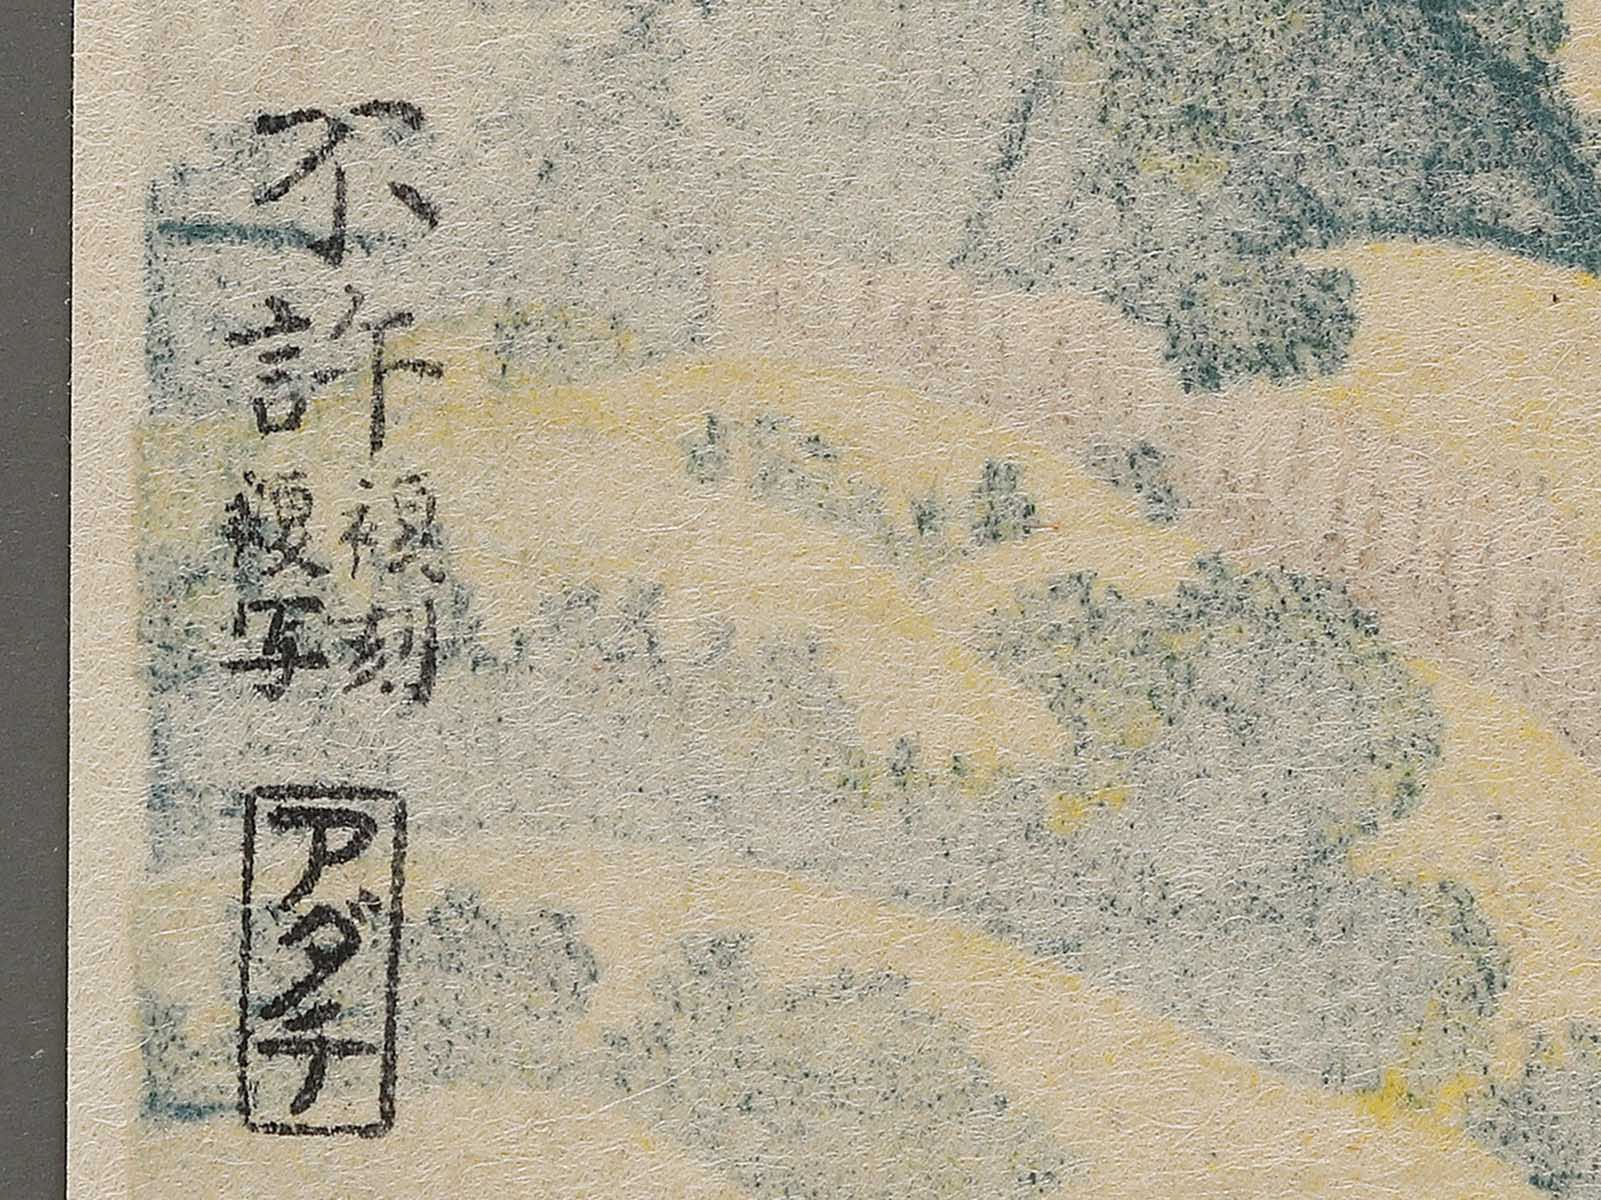 不許複刻複写
アダチ